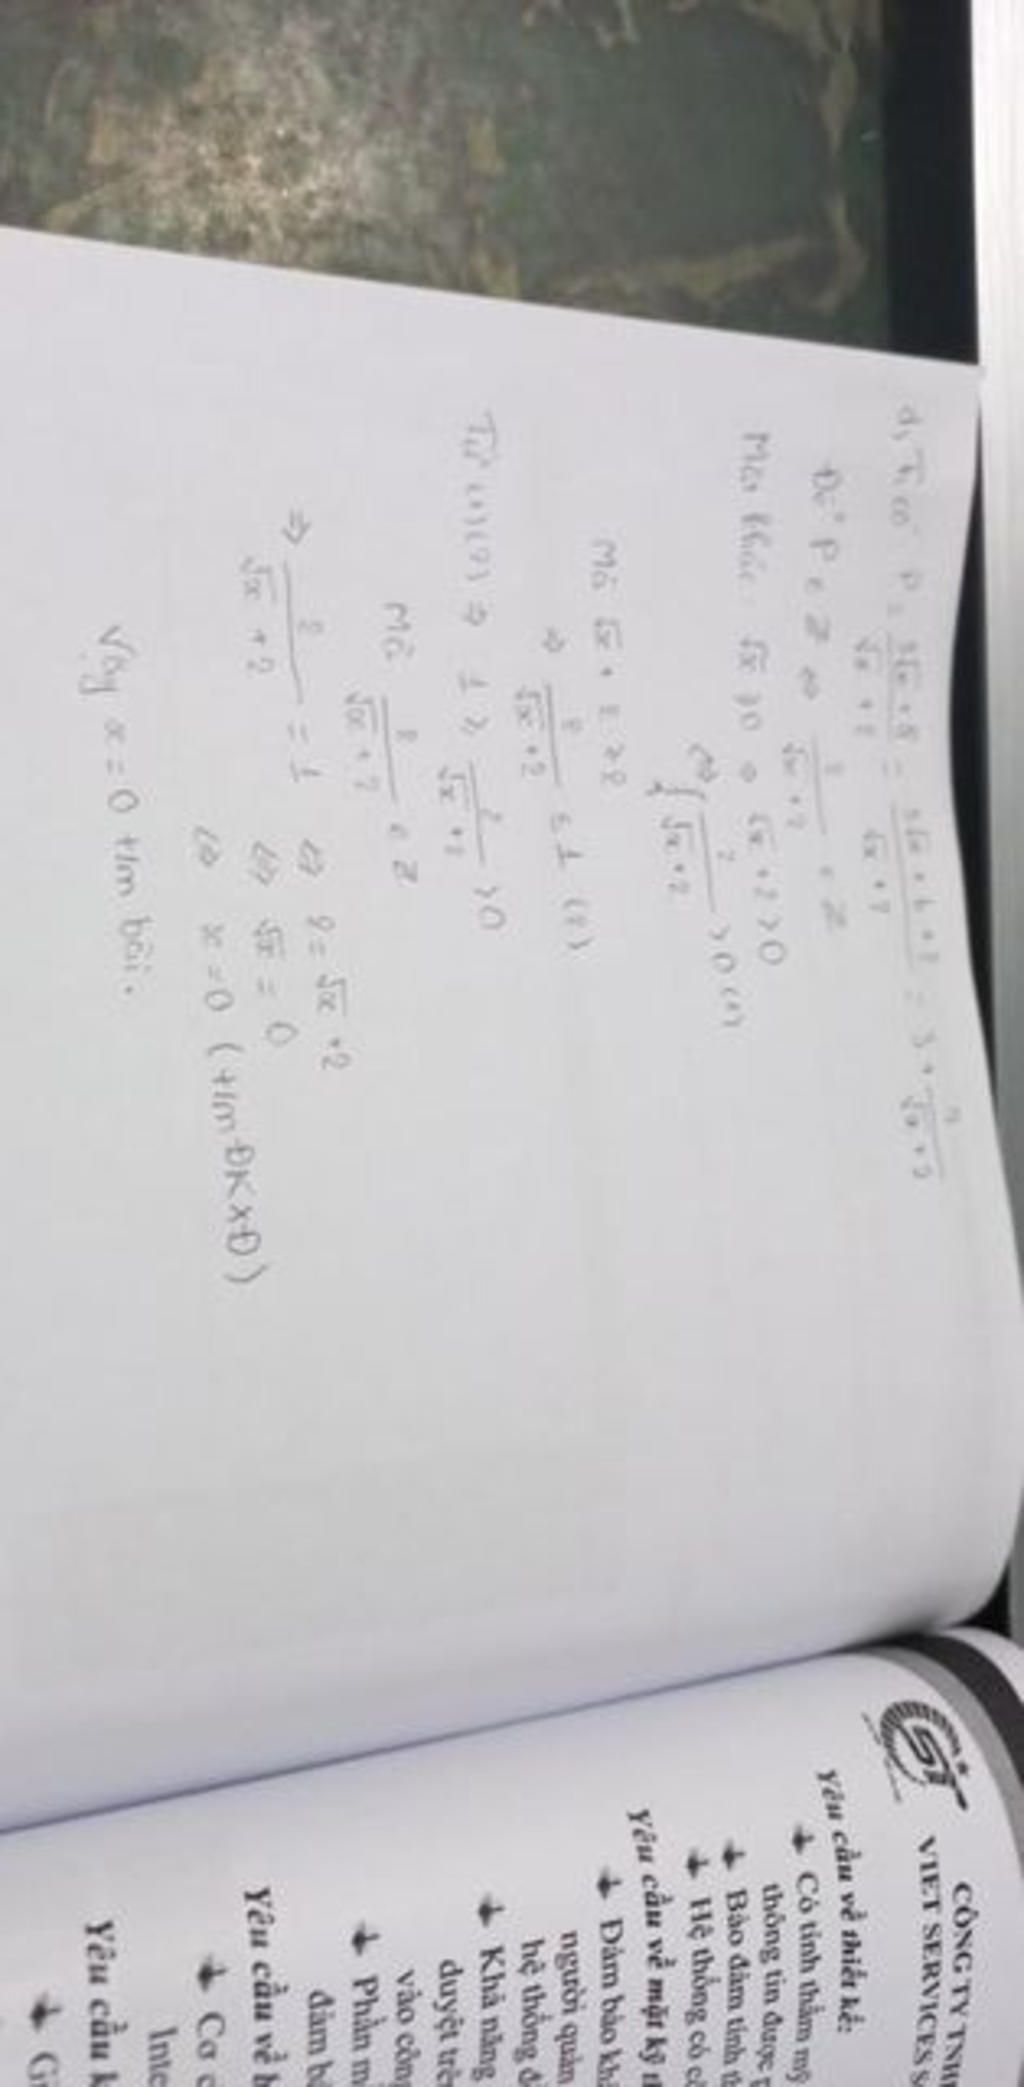 d) Ta có P = 3√x + 8 / √x + 2 = 3√x + 6 + 2 / √x + 2 = 3 + 2 / √x + 2
Để P ∈ Z ⇔ 2 / √x + 2 ∈ Z
Mặt khác: √x ≥ 0 ⇒ √x + 2 > 0
⇔ 2 / √x + 2 > 0 (1)
Mà √x + 2 ≥ 2
⇒ 2 / √x + 2 ≤ 1 (2)
Từ (1)(2) ⇒ 1 ≥ 2 / √x + 2 > 0
Mà 2 / √x + 2 ∈ Z
⇒ 2 / √x + 2 = 1 ⇔ 2 = √x + 2
⇔ √x = 0
⇔ x = 0 (t/m ĐKXĐ)
Vậy x = 0 t/m bài.
CÔNG TY TNH
VIET SERVICES S
Yêu cầu về thiết kế:
Có tính thẩm mỹ
thông tin được t
Bảo đảm tính t
Hệ thống có c
Yêu cầu về mặt kỹ t
Đảm bảo kh
người quản
hệ thống đ
Khả năng
duyệt trê
vào công
Phần m
đảm b
Yêu cầu về h
Cơ c
Inte
Yêu cầu k
Gi